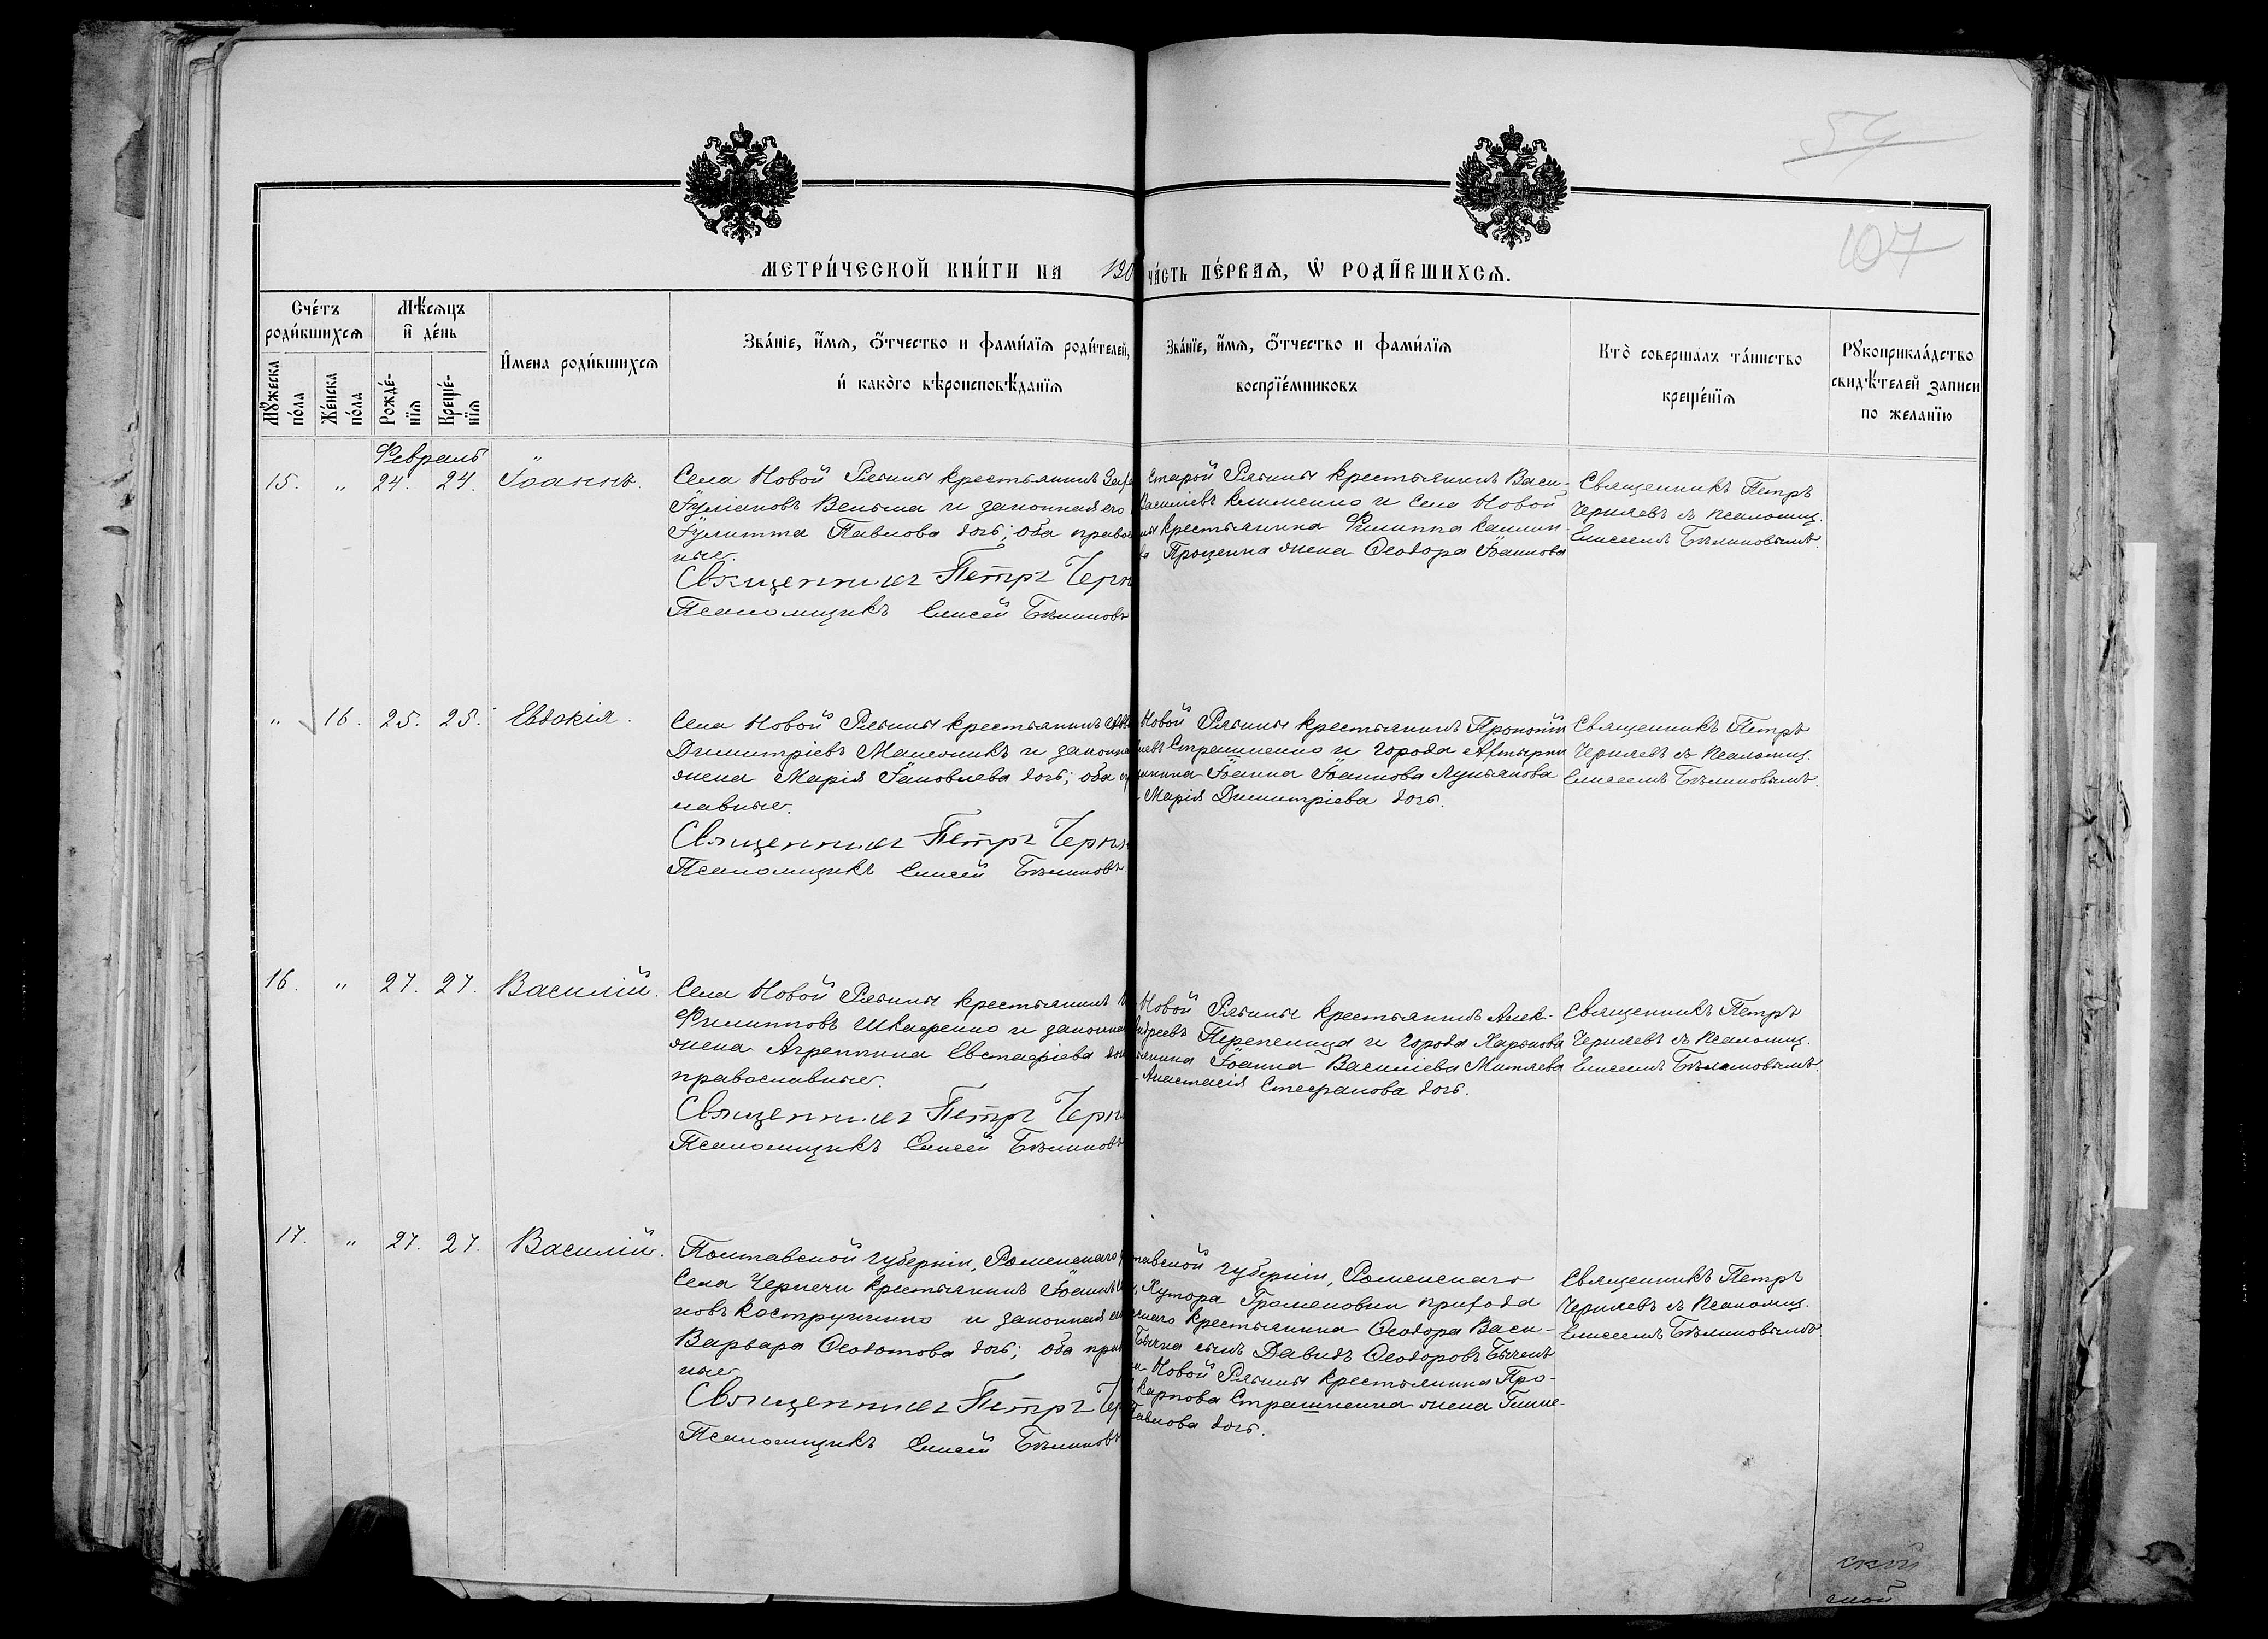 54
107
МЕТРИ́ЧЕСКОЙ КНИ́ГИ НА 190
ЧА́СТЬ ПЕ́РВАѦ, Ѡ РОДИ́ВШИХСѦ.
Сче́тъ роди́вшихсѧ
Мꙋ́жеска по́ла
Же́нска по́ла
Мѣ́сѧцъ и де́нь
Рожде́-нїѧ
Креще́-нїѧ
Имена роди́вшихсѧ
Зва́нїе, и́мѧ, ѻ́тчество и фами́лїѧ роди́телей,
и како́го вѣроисповѣ́данїѧ
Зва́нїе, и́мѧ, ѻ́тчество и фами́лїѧ
воспрїе́мниковъ
Кто̀ соверша́лъ та́инство
креще́нїѧ
Рꙋкоприкла́дство
свидѣ́телей записи
по жела́нїю
Февраль
15. " 24. 24. Іоаннъ.
Села Новой Рябины крестьянинъ
Іуліановъ Вельма и законная его
Іулитта Павлова дочь; оба право
ные.
Священникъ Петръ Черн
Псаломщикъ Елисей Бѣлиновъ
Старой Рябины крестьянинъ Васи-
Василіевъ Клименко и села Новой
крестьянина Филиппа
Проценка жена Ѳеодора Іоаннова
Священникъ Петръ
Черняевъ съ псаломщ.
Елисеемъ Бѣлиновымъ.
" 16. 25. 25. Евдокія.
Села Новой Рябины крестьянинъ
Димитріевъ и законна
жена Марія Іаковлева дочь; оба пр
лавные.
Священникъ Петръ Черня
Псаломщикъ Елисей Бѣлиновъ
Новой Рябины крестьянинъ Прокопій
Страшненко и города Ахтырки
Іоанна Іоаннова Лукьянова
Марія Димитріева дочь.
Священникъ Петръ
Черняевъ съ псаломщ.
Елисеемъ Бѣлиновымъ.
16. " 27. 27. Василій.
Села Новой Рябины крестьянинъ
Филипповъ Шкаренко и законная
жена Агриппина Евстафіева доч
православные.
Священникъ Петръ Черн
Псаломщикъ Елисей Бѣлиновъ
Новой Рябины крестьянинъ Алек-
ндреевъ Перепелица и города Харькова
Іоанна Василіева Митяева
Анастасія Стефанова дочь.
Священникъ Петръ
Черняевъ съ псаломщ.
Елисеемъ Бѣлиновымъ.
17. " 27. 27. Василій.
Полтавской губерніи, Роменскаго
села Чернечи крестьянинъ Іоаннъ
новъ и законная
Варвара Ѳеодотова дочь; оба прав
ные
Священникъ Петръ Чер
Псаломщикъ Елисей Бѣлиновъ
тавской губерніи, Роменскаго
Хутора прихода
крестьянина Ѳеодора Васи-
сынъ Давидъ Ѳеодоровъ
Новой Рябины крестьянина Про-
Карпова Страшненка жена
Павлова дочь.
Священникъ Петръ
Черняевъ съ псаломщ.
Елисеемъ Бѣлиновымъ
ской
ской